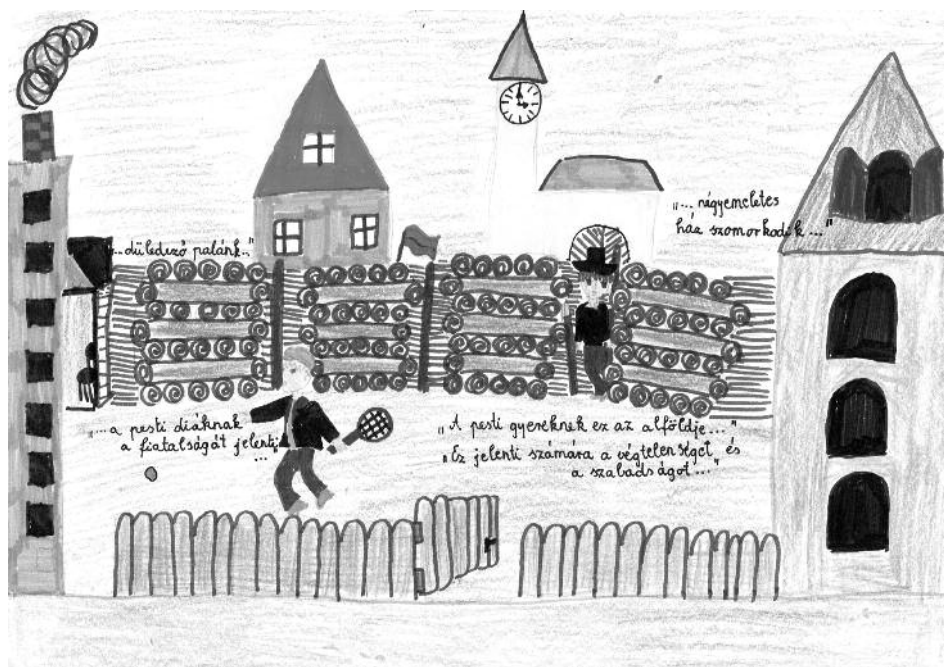 „... négyemeletes
ház szomorkodik ..."
„...düledező palánk..."
„...a pesti diáknak
a fiatalságát jelenti
..."
„A pesti gyereknek ez az alföldje..."
„Ez jelenti számára a végtelenséget és
a szabadságot..."